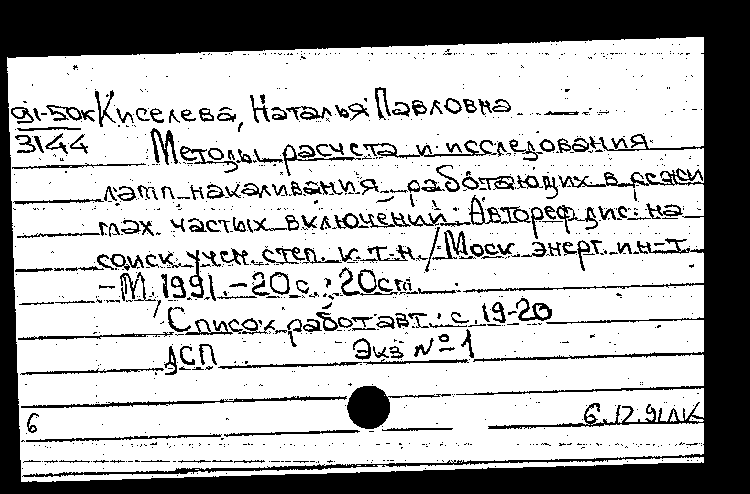 91-50к Киселева, Наталья Павловна
3144 Методы расчета и исследования
ламп накаливания, работающих в режи
мах частых включений: Автореф дис. на
соиск. учен. степ. к.т.н. / Моск. энерг. ин-т.
-М. 1991.-20 с.; 20 см.
Список работ авт.: с. 19-20
ДСП Экз №1
6 6.12.91 ЛК